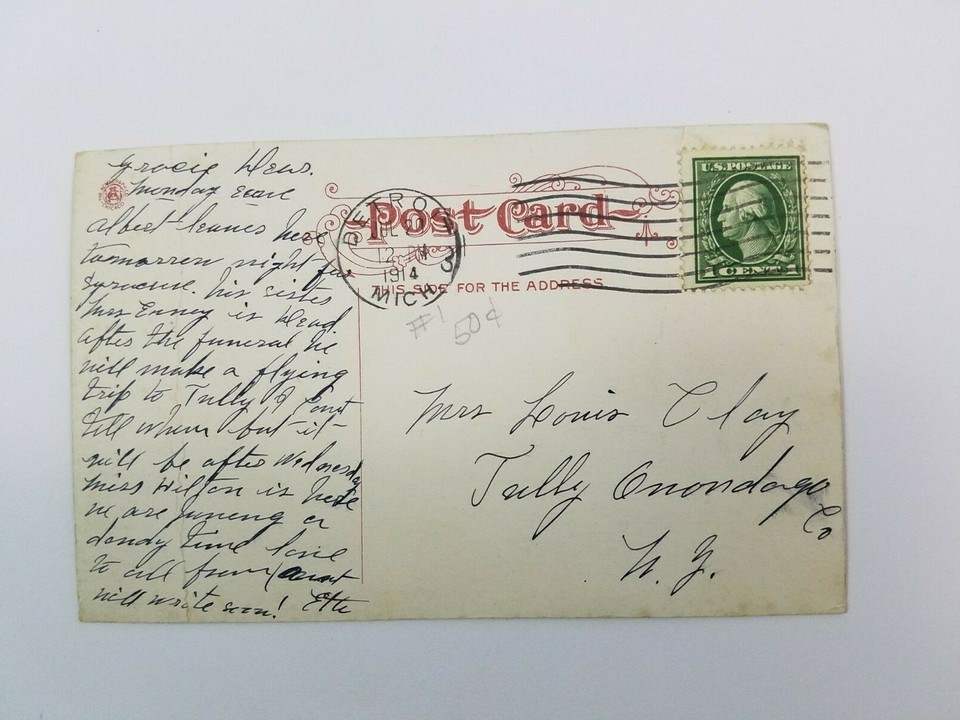 Gracie Dear.
Monday eave
Albert leaves here
tomorren night for
Syracuse. his sister
Mrs Enney is dead
after the funeral he
will make a flying
trip to Tully I cant
tell when but it
will be after Wednesday
Miss Hilton is here
we are having a
dandy time love
to all from aunt
will write soon! Ette
Post Card
THIS SIDE FOR THE ADDRESS
DETROIT
12 PM
1914
MICH
U.S. POSTAGE
1 CENT 1
#1
50¢
Mrs Louis Clay
Tully Onondaga
Co
N. Y.